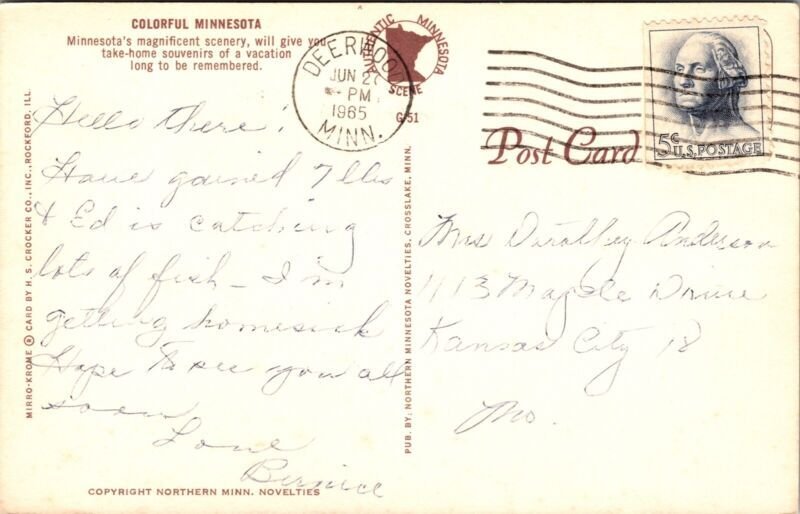 COLORFUL MINNESOTA
Minnesota's magnificent scenery, will give you
take-home souvenirs of a vacation
long to be remembered.
AUTHENTIC MINNESOTA
SCENE
G-51
DEERWOOD
JUN 2
PM
1965
MINN.
5c U.S. POSTAGE
Post Card
Hello there!
Have gained 7 lbs
& Ed is catching
lots of fish - I'm
getting homesick
Hope to see you all
soon
Love
Bernice
Mrs Dorothy Anderson
Maple Drive
Kansas City 18
Mo.
MIRRO-KROME ® CARD BY H. S. CROCKER CO., INC., ROCKFORD, ILL.
PUB. BY: NORTHERN MINNESOTA NOVELTIES, CROSSLAKE, MINN.
COPYRIGHT NORTHERN MINN. NOVELTIES